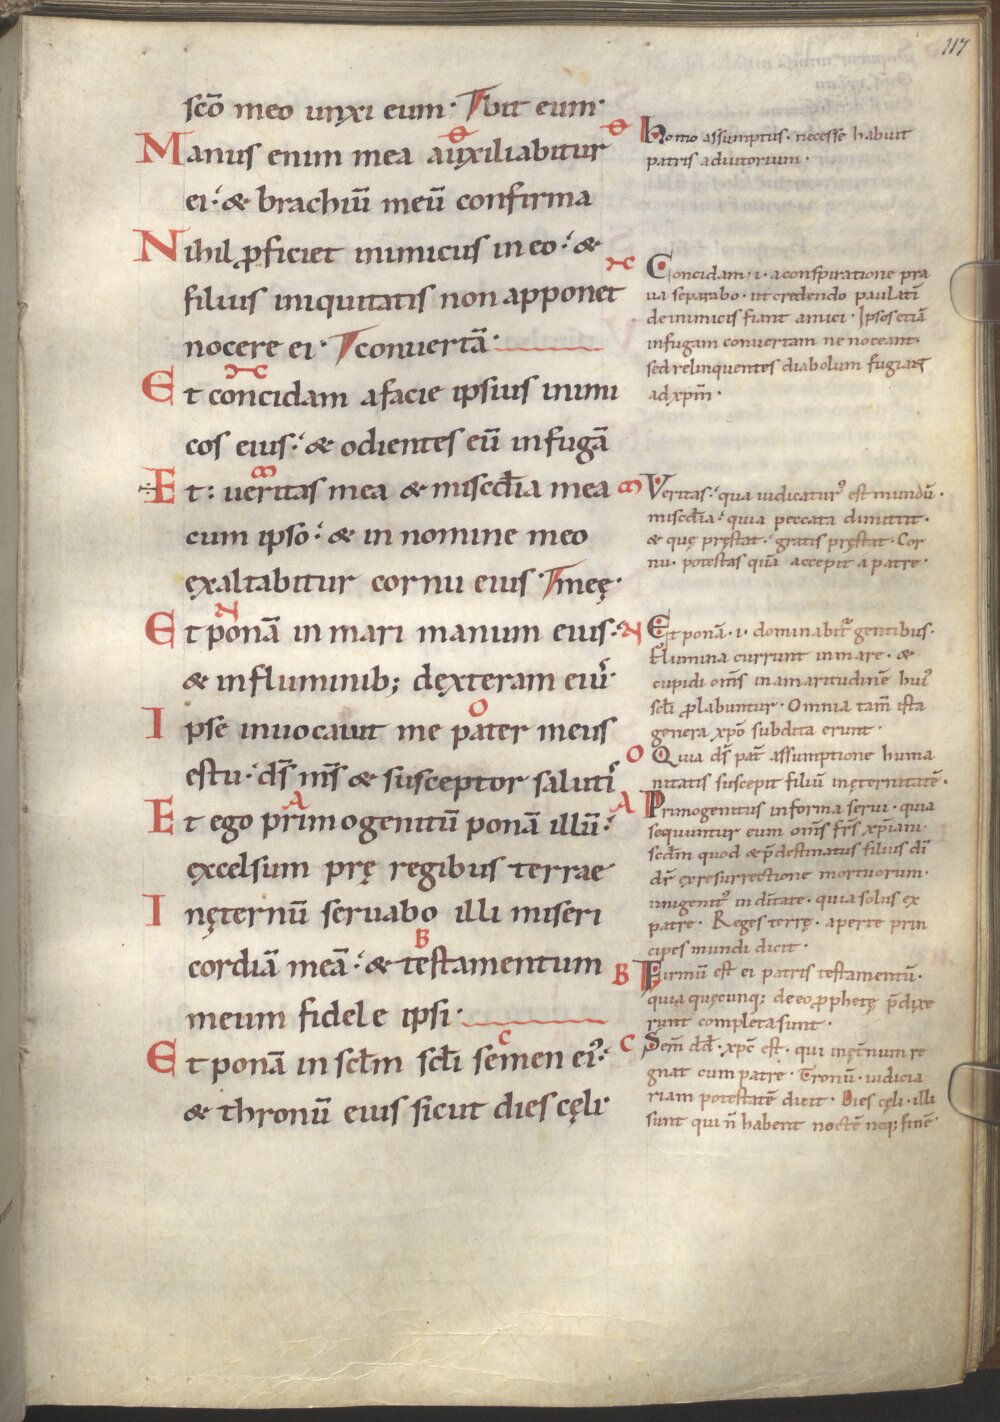 117
scō meo unxi eum· bit eum·
Manus enim mea auxiliabitur
ei·́ & brachiū meū confirma
Nihil ꝓficiet inimicus in eo·́ &
filius iniquitatis non apponet
nocere ei· conuertā·
Et concidam a facie ipsius inimi
cos eius·́ & odientes eū in fugā
Et: ueritas mea & misc̄dia mea
cum ipso·́ & in nomine meo
exaltabitur cornu eius· meę·
Et ponā in mari manum eius·́
& in fluminib; dexteram eius·
Ipse inuocauit me pater meus
es tu· ds̄ ms̄ & susceptor salutis
Et ego primogenitū ponā illū·́
excelsum prę regibus terrae
In ęternū seruabo illi miseri
cordiā meā·́ & testamentum
meum fidele ipsi·
Et ponā in scl̄m scl̄i semen ei᾽·
& thronū eius sicut dies cęli·
Θ Homo assumptus· necesse habuit
patris adiutorium·
Concidam· i· a conspiratione pra
ua separabo· ut credendo paulatī
de inimicis fiant amici· Ipsos etiā
in fugam conuertam ne noceant·
sed relinquentes diabolum fugiant
ad xp̄m·
Veritas·́ qua iudicatur᾽ est mundū·
misc̄dia·́ quia peccata dimittit·
& quę pręstat· gratis pręstat· Cor
nu· potestas quā accepit a patre·
N Et ponā· i· dominabit᾽ gentibus·
Flumina currunt in mare· &
cupidi om̄s in amaritudinē hui᾽
scl̄i ꝓlabuntur· Omnia tam̄ ista
genera xp̄o subdita erunt·
O Quia ds̄ pat̄ assumptione huma
nitatis suscepit filiū in ęternitatē·
A Primogenitus in forma serui· quia
sequuntur eum om̄s fr̄s xp̄iani·
sc̄dm quod & p̄destinatus filius dī
dr̄ ex resurrectione mortuorum·
unigenit᾽ in dītate· quia solus ex
patre· Reges terrę· aperte prin
cipes mundi dicit·
B Firmū est ei patris testamentū·
quia quęcunq; de eo ꝓphetę p̄dixe
runt completa sunt·
C Sem̄ dd̄· xp̄c est· qui in ęt̄num re
gnat cum patre· Tronū· iudicia
riam potestatē dicit· Dies cęli· illi
sunt qui n̄ habent noctē neq; finē·